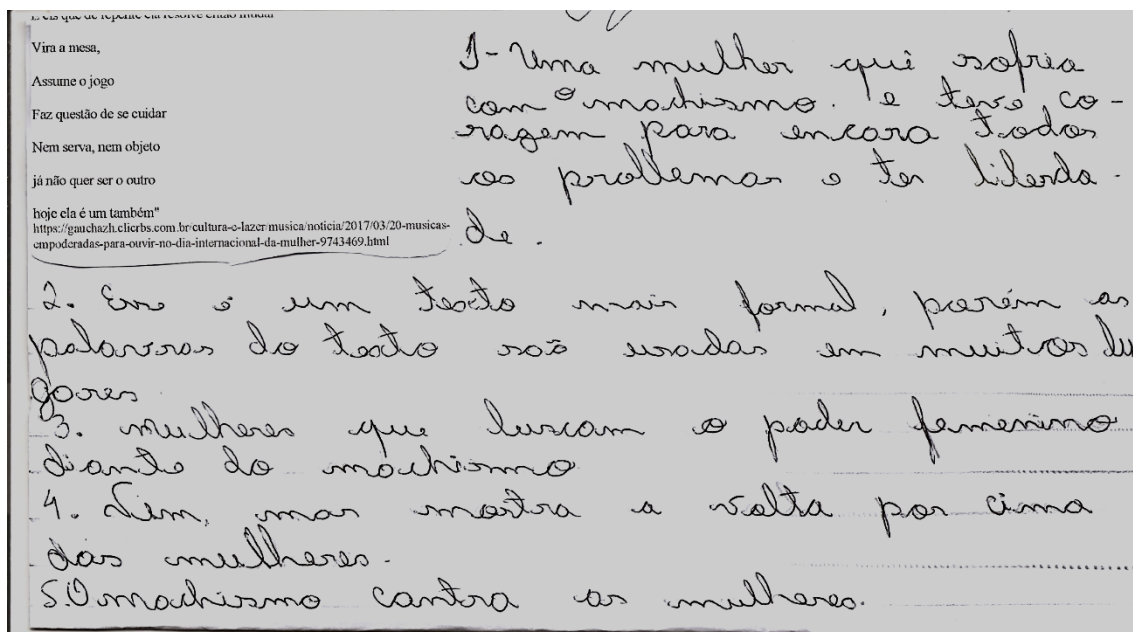 E eis que de repente ela resolve então mudar
Vira a mesa,
Assume o jogo
Faz questão de se cuidar
Nem serva, nem objeto
já não quer ser o outro
hoje ela é um também"
https://gauchazh.clicrbs.com.br/cultura-e-lazer/musica/noticia/2017/03/20-musicas-
empoderadas-para-ouvir-no-dia-internacional-da-mulher-9743469.html
1- Uma mulher que sofria
com o machismo. e teve co-
ragem para encara todos
os problemas e ter liberda-
de.
2. Esse é um texto mais formal, porém as
palavras do texto são usadas em muitos lu
gares
3. mulheres que buscam o poder femenimo
diante do machismo
4. Sim, mas mostra a volta por cima
das mulheres.
5. O machismo contra as mulheres.